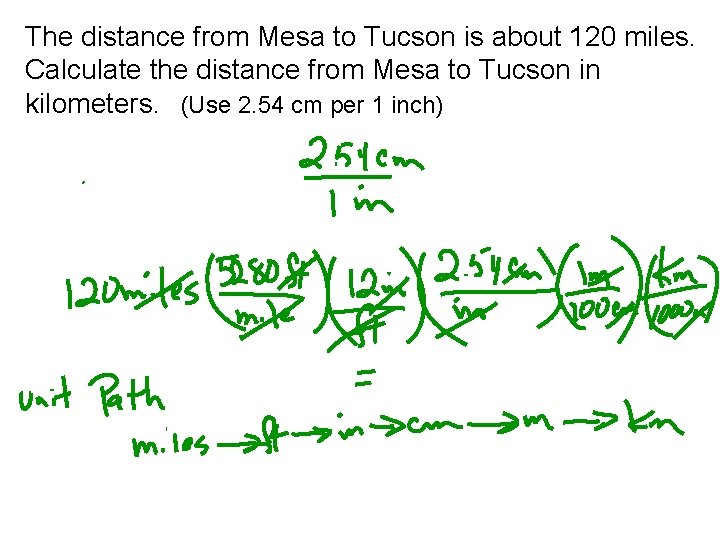 The distance from Mesa to Tucson is about 120 miles.
Calculate the distance from Mesa to Tucson in
kilometers. (Use 2.54 cm per 1 inch)
2.54 cm
1 in
120 miles (5280 ft / mile) (12 in / ft) (2.54 cm / in) (1m / 100 cm) (km / 1000m)
=
unit Path
miles → ft → in → cm → m → km